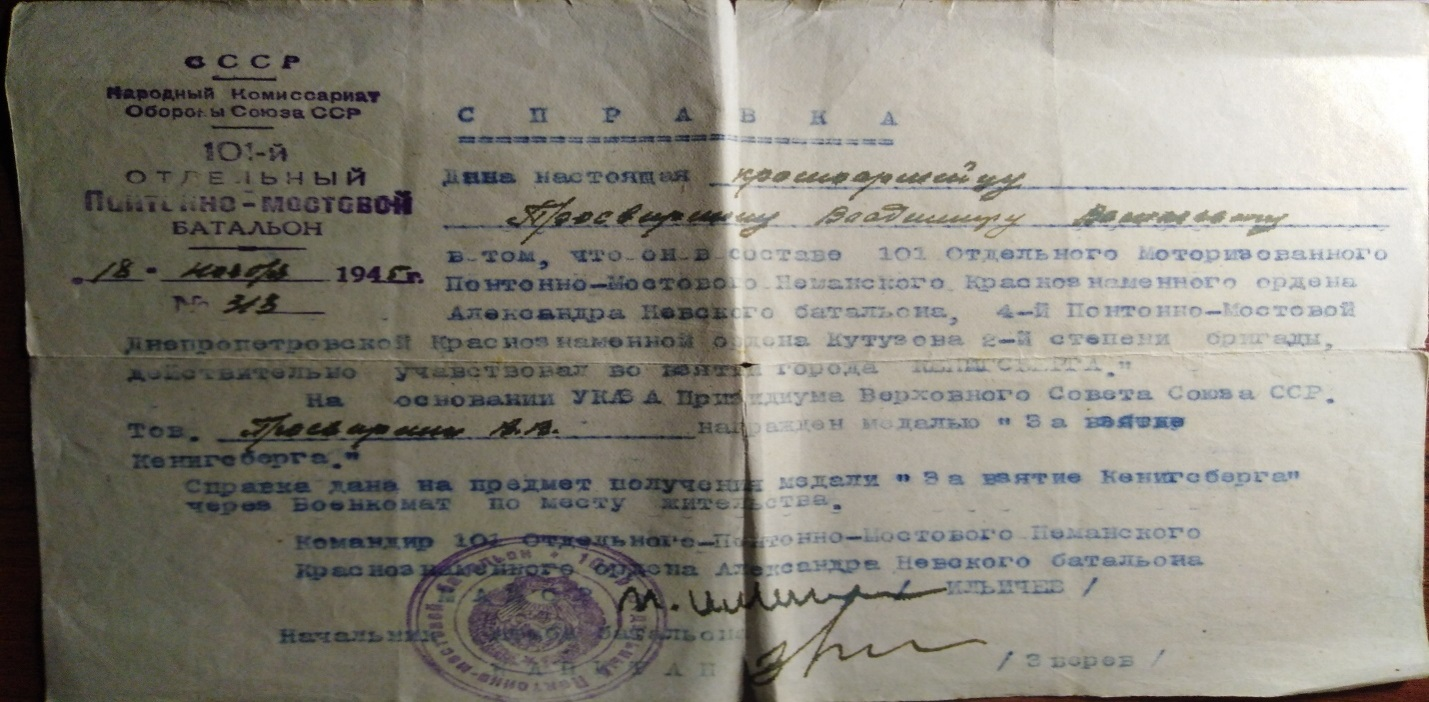 СССР
Народный Комиссариат
Обороны Союза ССР
101-й
ОТДЕЛЬНЫЙ
Понтонно-мостовой
БАТАЛЬОН
"18" ноября 1945 г.
№ 313
СПРАВКА
Дана настоящая красноармейцу
Просвирнину Владимиру Васильевичу
в том, что он в составе 101 Отдельного Моторизованного
Понтонно-Мостового Неманского Краснознаменного ордена
Александра Невского батальона, 4-й Понтонно-Мостовой
Днепропетровской Краснознаменной ордена Кутузова 2-й степени бригады,
действительно учавствовал во взятии города "КЕНИГСБЕРГА."
На основании УКАЗА Президиума Верховного Совета Союза ССР.
Тов. Просвирнин В.В. награжден медалью "За взятие
Кенигсберга."
Справка дана на предмет получения медали "За взятие Кенигсберга"
через Военкомат по месту жительства.
Командир 101 Отдельного-Понтонно-Мостового Неманского
Краснознаменного ордена Александра Невского батальона
/ ИЛЬИЧЕВ /
Начальник штаба батальона
КАПИТАН / Зверев /